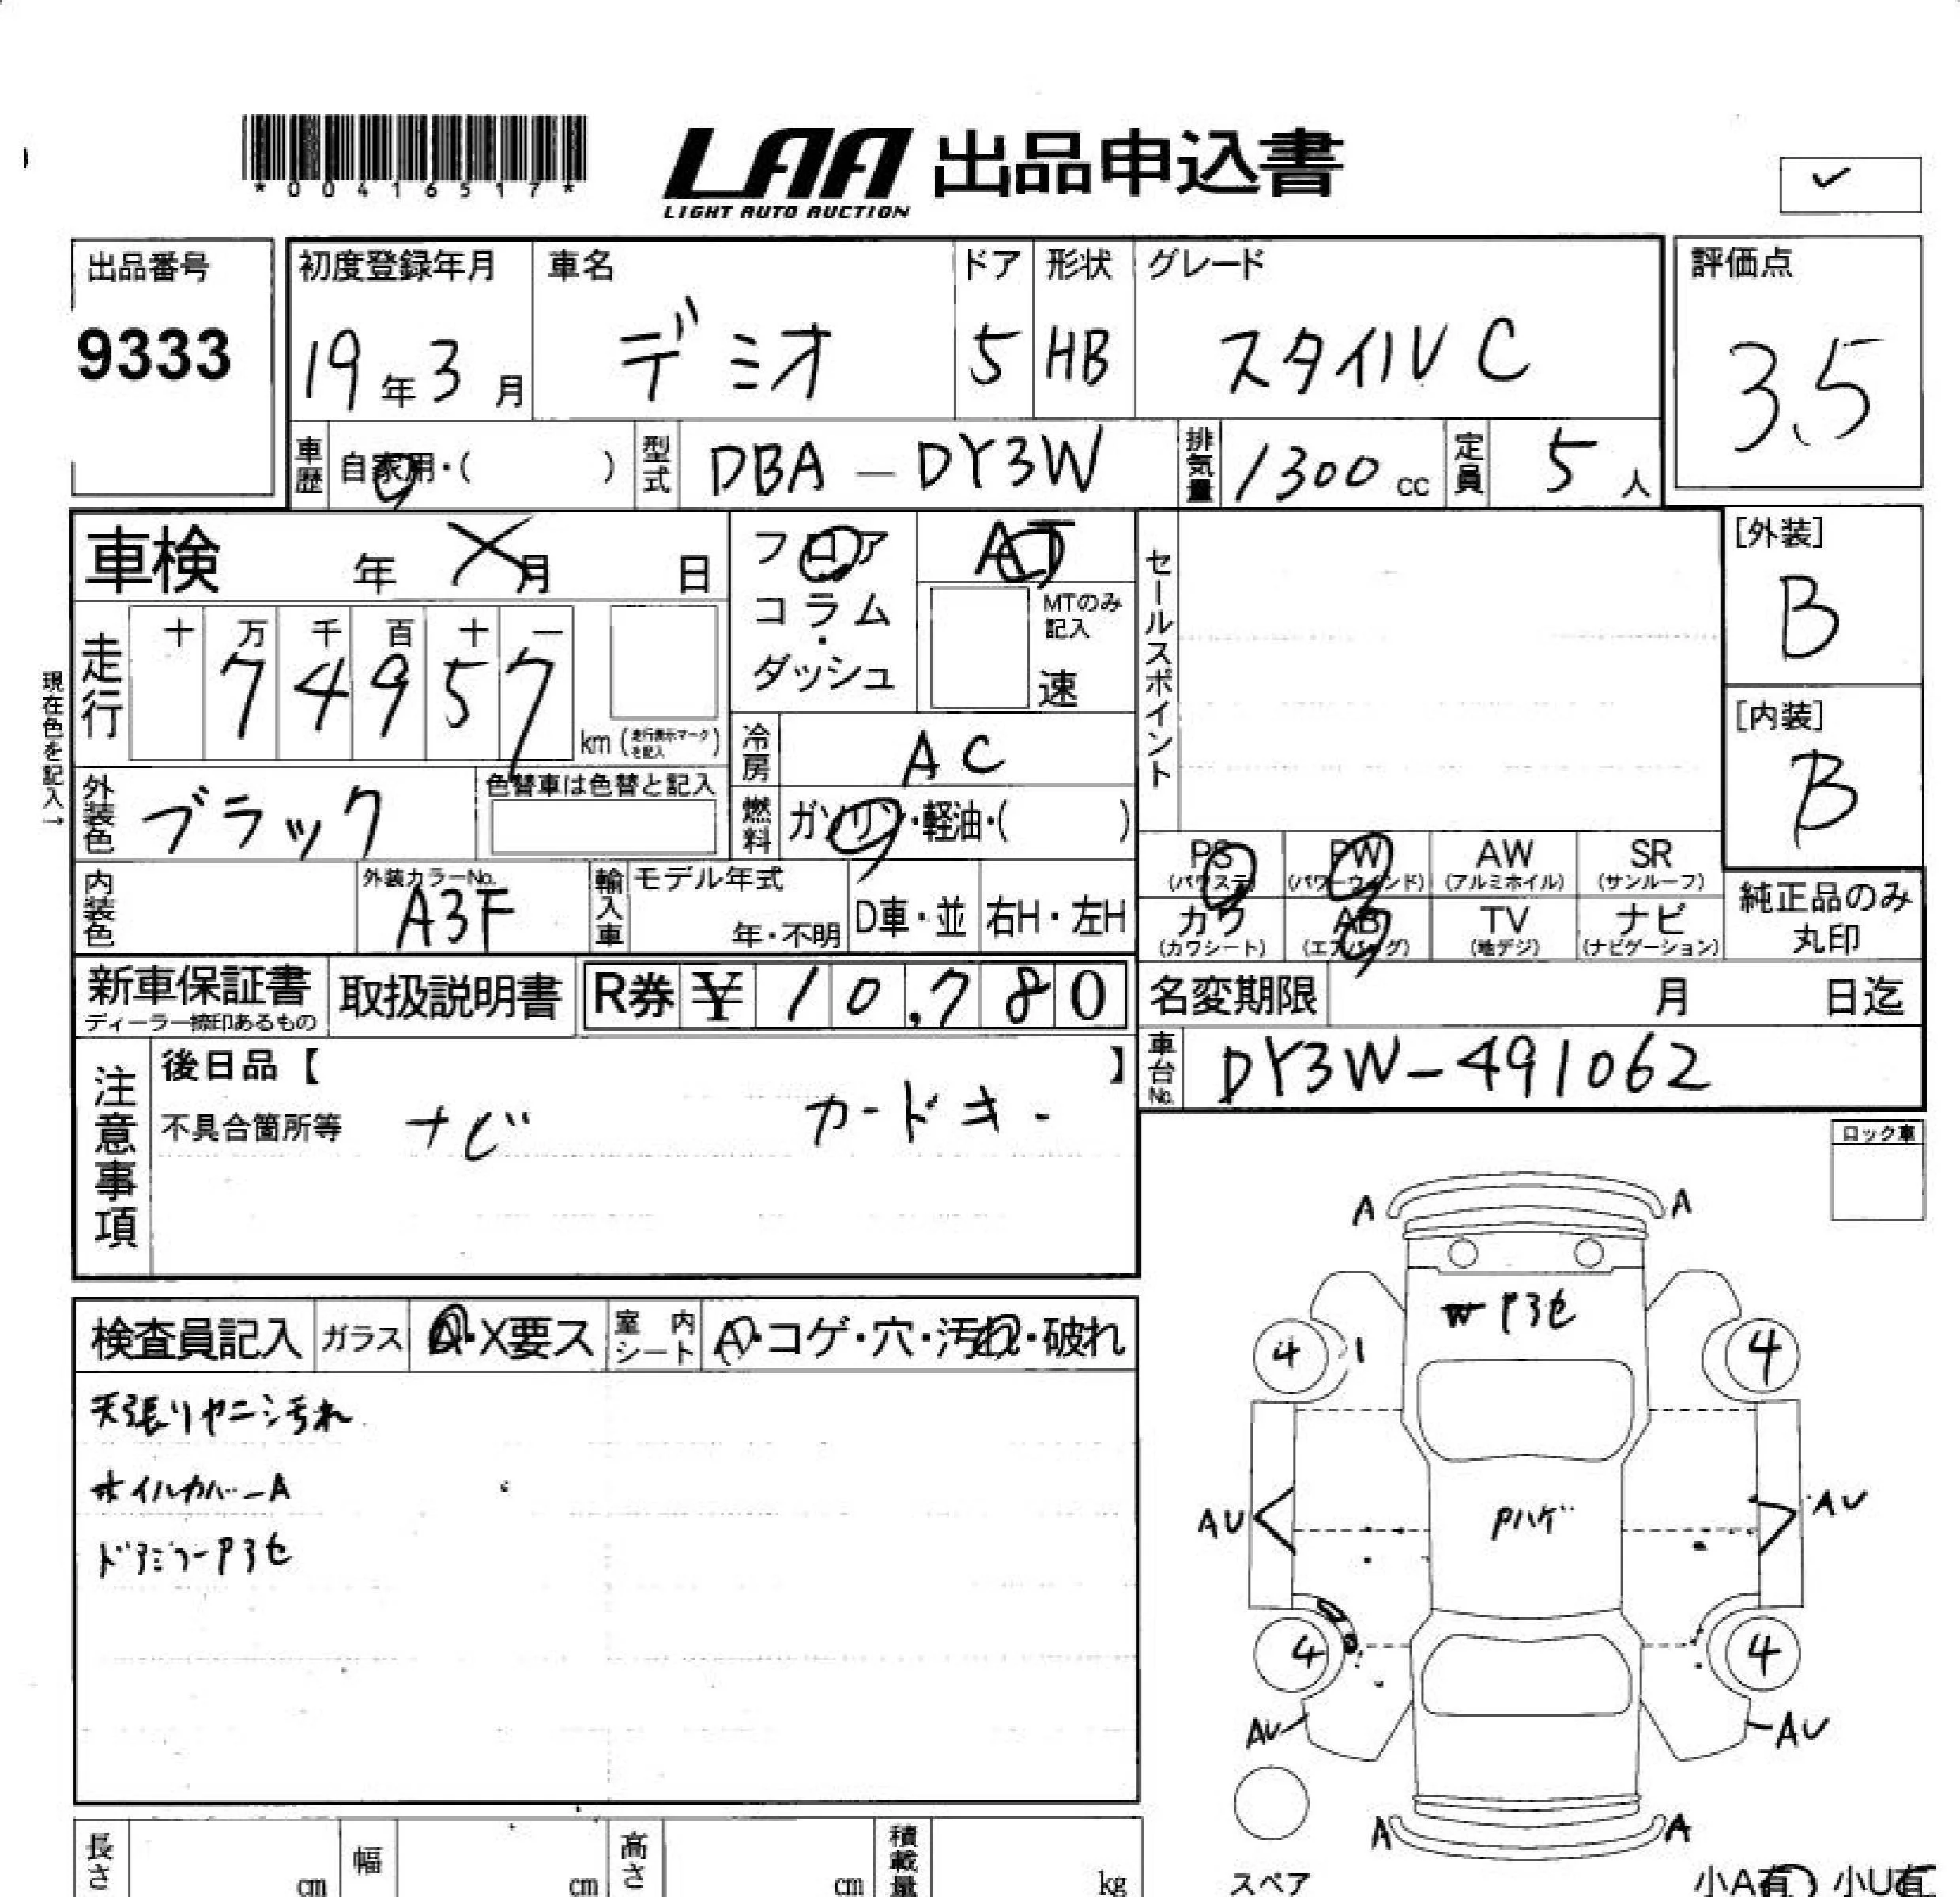 *00416517*
LAA 出品申込書
LIGHT AUTO AUCTION
出品番号
9333
初度登録年月
19年3月
車名
デミオ
ドア
5
形状
HB
グレード
スタイルC
評価点
3.5
車歴
自家用・( )
型式
DBA-DY3W
排気量
1300cc
定員
5人
車検 年 月 日
フロア
コラム
・
ダッシュ
AT
MTのみ
記入
速
セールスポイント
[外装]
B
[内装]
B
現在色を記入→
走行
十 万 千 百 十 一
7 4 9 5 7
km(走行表示マークを記入)
冷房
AC
外装色
ブラック
色替車は色替と記入
燃料
ガソリン・軽油・( )
PS
(パワステ)
PW
(パワーウインド)
AW
(アルミホイル)
SR
(サンルーフ)
カワ
(カワシート)
AB
(エアバッグ)
TV
(地デジ)
ナビ
(ナビゲーション)
純正品のみ
丸印
内装色
外装カラーNo.
A3F
輸入車
モデル年式
年・不明
D車・並
右H・左H
新車保証書
ディーラー捺印あるもの
取扱説明書
R券 ¥ 10,780
名変期限 月 日迄
車台No.
DY3W-491062
注意事項
後日品【 】
不具合箇所等 ナビ カードキー
ロック車
検査員記入
ガラス
A・X要ス
室内シート
A・コゲ・穴・汚れ・破れ
天張リヤニシ汚れ
ホイルカバーA
ドアミラーPヨセ
A A
Pヨセ
4 4
AU AU
Pハゲ
4 4
AU AU
A A
スペア
小A有 小U有
長さ cm
幅 cm
高さ cm
積載量 kg